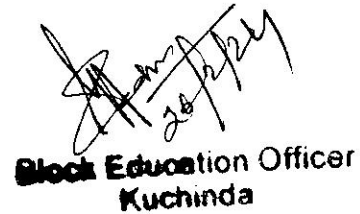 20/2/24
Block Education Officer
Kuchinda